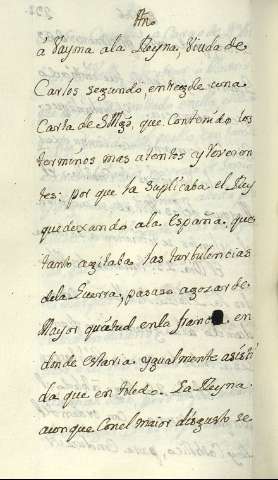 á Vayma ala Reyna, Viuda de
Carlos segundo, entregole una
Carta de S. Mgd, que Contenido los
terminos mas atentos y reveren
tes: por que la suplicaba el Rey
que dexando ala España que
tanto agitaba las turbulencias
dela Guerra, pasase agozar de
Mayor quietud enla francia en
donde estaria ygualmente asisti
da que en toledo. La Reyna
aunque Conel maior disgusto se